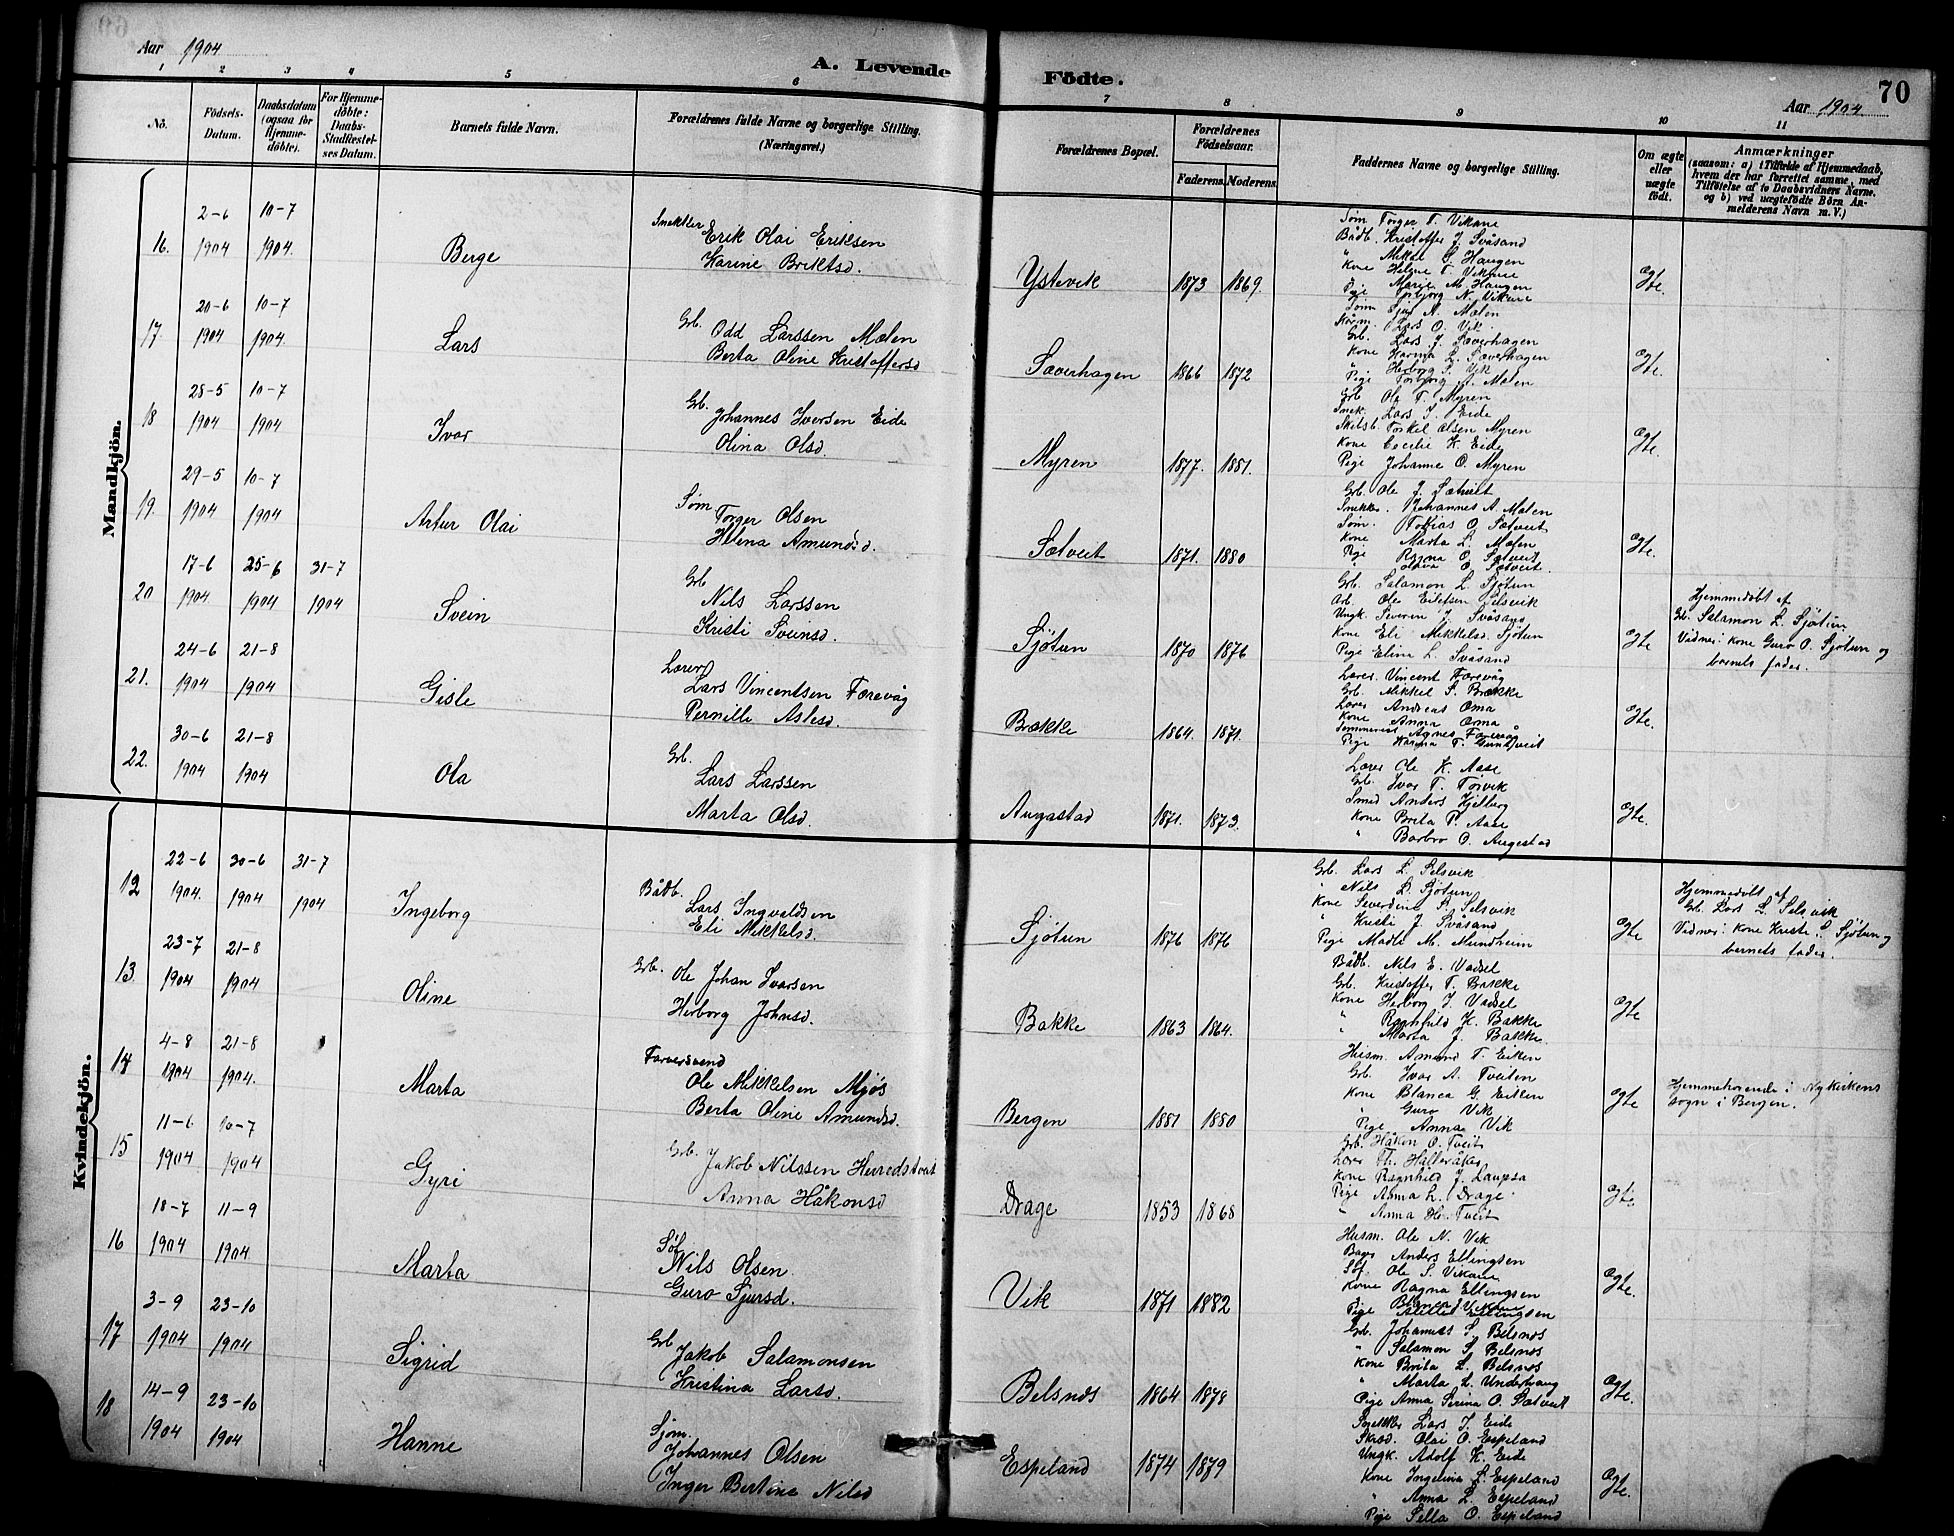 Aar 1904
A. Levende Födte.
70
Aar 1904
1 2 3 4 5 6 7 8 9 10 11
No.
Födsels-Datum.
Daabsdatum (ogsaa for Hjemme-döbte).
For Hjemme-döbte: Daabs-Stadfæstel-ses Datum.
Barnets fulde Navn.
Forældrenes fulde Navne og borgerlige Stilling. (Næringsvei.)
Forældrenes Bopæl.
Forældrenes Födselsaar.
Faderens. Moderens.
Faddernes Navne og borgerlige Stilling.
Om ægte eller uægte födt.
Anmærkninger
(saasom: a) i Tilfælde af Hjemmedaab, hvem der har forrettet samme, med Tilföielse af to Daabsvidners Navne. og b) ved uægtefödte Börn An-melderens Navn m. V.)
Mandkjön.
16. 2-6 1904 10-7 1904. Berge
Snekker Erik Olai Eriksen
Karine Briktsd.
Ystevik 1873 1869.
Søm Torger T. Vikane
Bådb. Kristoffer J. Svåsand
" Mikal S. Haugen
Kone Helene T. Vikane
Marie M. Haugen
Pige Torbjørg N. Vikane
Ægte.
17. 20-6 1904 10-7 1904. Lars
Grb. Odd Larssen Mælen
Berta Oline Kristoffersd
Sæverhagen 1866 1872
Lars O. Vik
Grb. Lars J. Sæverhagen
Kone Hanna L. Sæverhagen
" Herborg S. Vik
Pige Torbjørg A. Mælen
Ægte.
18 28-5 1904 10-7 1904 Ivar
Grb. Johannes Iversen Eide
Olina Olsd.
Myren 1877. 1881.
Grb. Ole T. Myren
Snek. Lars J. Eide
Torkel Olsen Myren
Kone Cecilie K. Eide
Pige Johanne O. Myren
Ægte.
19. 29-5 1904 10-7 1904 Artur Olai
Søm Torger Olsen
Helena Amundsd.
Sætveit 1871. 1880
Grb. Ole J. Sætveit
Snekker. Johannes A. Mælen
Søm. Tobias O. Sætveit
Kone Marta L. Mælen
Pige Ragna O. Sætveit
" O. Sætveit.
Ægte.
20 17-6 1904. 25-6 1904 31-7 1904 Svein
Grb Nils Larssen
Kristi Sveinsd.
Sjøtun 1870 1876
Grb. Salamon L. Sjøtun
Arb. Ole Eilefsen Selsvik
Ungk. Severin J. Svåsand
Kone Eli Mikkelsd. Sjøtun
Pige Elina L. Svåsand
Ægte
Hjemmedøbt af
Grb. Salamon L. Sjøtun.
Vidner: Kone Guro O. Sjøtun og
barnets fader.
21. 24-6 1904 21-8 1904 Gisle
Lærer Lars Vincentsen Færevåg
Pernille Aslesd.
Brække 1864. 1871.
Lærer. Vincent Færevåg
Grb. Mikkel S. Brække
Lærer Andreas Oma
Kone Anna Oma
Agnes Færevåg
Pige Karina T. Guntveit
Ægte.
22. 30-6 1904 21-8 1904 Ola
Grb. Lars Larssen
Marta Olsd.
Augastad 1871. 1873.
Lærer Ole K. Aase
Grb. Ivar T. Torvik
Smed Anders Hjelberg
Kone Brita P. Aase
" Barbro O. Augestad
Ægte.
Kvindekjön.
12 22-6 1904. 30-6 1904 31-7 1904 Ingeborg
Bådb. Lars Ingvaldsen
Eli Mikkelsd.
Sjøtun 1876 1876
Grb. Lars L. Selsvik
" Nils L. Sjøtun
Kone Severdine S. Selsvik
" Kristi J. Svåsand
Pige Madli M. Mundheim
Ægte
Hjemmedøbt af
Grb. Lars L. Selsvik
Vidner: Kone Kristi L. Sjøtun og
barnets fader.
13. 23-7 1904 21-8 1904 Oline
Grb. Ole Johan Ivarsen
Herborg Johnsd.
Bakke 1863 1864.
Bådb. Nils E. Vadsel
Grb. Kristoffer T. Bakke
Kone Herborg J. Vadsel
" Ragnhild K. Bakke
" Marta J. Bakke.
Ægte
14 4-8 1904 21-8 1904. Marta
Farversvend
Ole Mikkelsen Mjøs
Berta Oline Amundsd.
Bergen 1881 1880
Husm. Amund T. Eiken
Grb. Ivar A. Tveiten
Kone Blanca G. Eitlen
" Guro Vik
Pige Anna Vik
Ægte
Hjemmehørende i Nykirkens
sogn i Bergen.
15 11-6 1904 10-7 1904 Gyri
Grb. Jakob Nilssen Heredstveit
Anna Håkonsd
Drage 1853 1868
Grb. Håkon O. Tveit
Lærer Th. Hålleråker
Kone Ragnhild J. Laupsa
Pige Anna L. Drage
" Anna H. Tveit
Ægte
16 18-7 1904 11-9 1904 Marta
Søf. Nils Olsen
Guro Sjursd.
Vik 1871 1882
Husm. Ole N. Vik
Bager Anders Ellingsen
Søf. Ole S. Vikane
Kone Ragna Ellingsen
Pige Ellingsen
Ægte.
17 3-9 1904 23-10 1904 Sigrid
Grb Jakob Salamonsen
Kristina Larsd
Belsnæs 1864 1878
Grb. Johannes S. Belsnæs
" Salamon S. Belsnæs
Kone Brita L. Belsnæs
" Marta L. Underhaug
Pige Anna Serina O. Sætveit
Ægte.
18 14-9 1904 23-10 1904 Hanne
Sjøm. Johannes Olsen
Inger Bertine Nilsd
Espeland 1874 1879
Snekker Lars J. Eide
Skræd. Olai O. Espeland
Ungk. Adolf K. Eide
Kone Ingelina L. Espeland
" Anna L. Espeland
Pige Sella O. Espeland
Ægte.